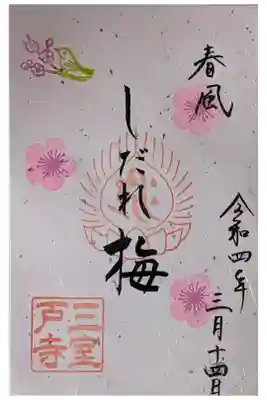 春風
しだれ梅
令和四年
三月十四日
三室
戸寺